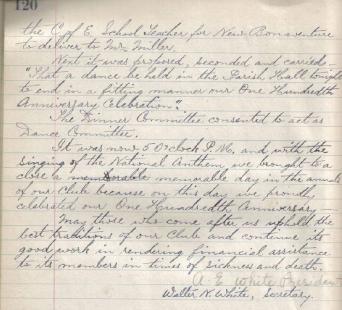 120
the C. of E. School Teacher for New Bonaventure
to deliver to Mr. Miller.
Next it was proposed, seconded and carried:-
"That a dance be held in the Parish Hall tonight
to end in a fitting manner our One Hundredth
Anniversary Celebration".
The Dinner Committee consented to act as
Dance Committee.
It was now 5 o'clock P.M. and with the
singing of the National Anthem, we brought to a
close a memorable memorable day in the annals
of our Club because on this day we proudly
celebrated our One Hundredth Anniversary.
May those who come after us uphold the
best traditions of our Club and continue its
good work in rendering financial assistance
to its members in times of sickness and death.
A. E. White President
Walter N. White, Secretary.